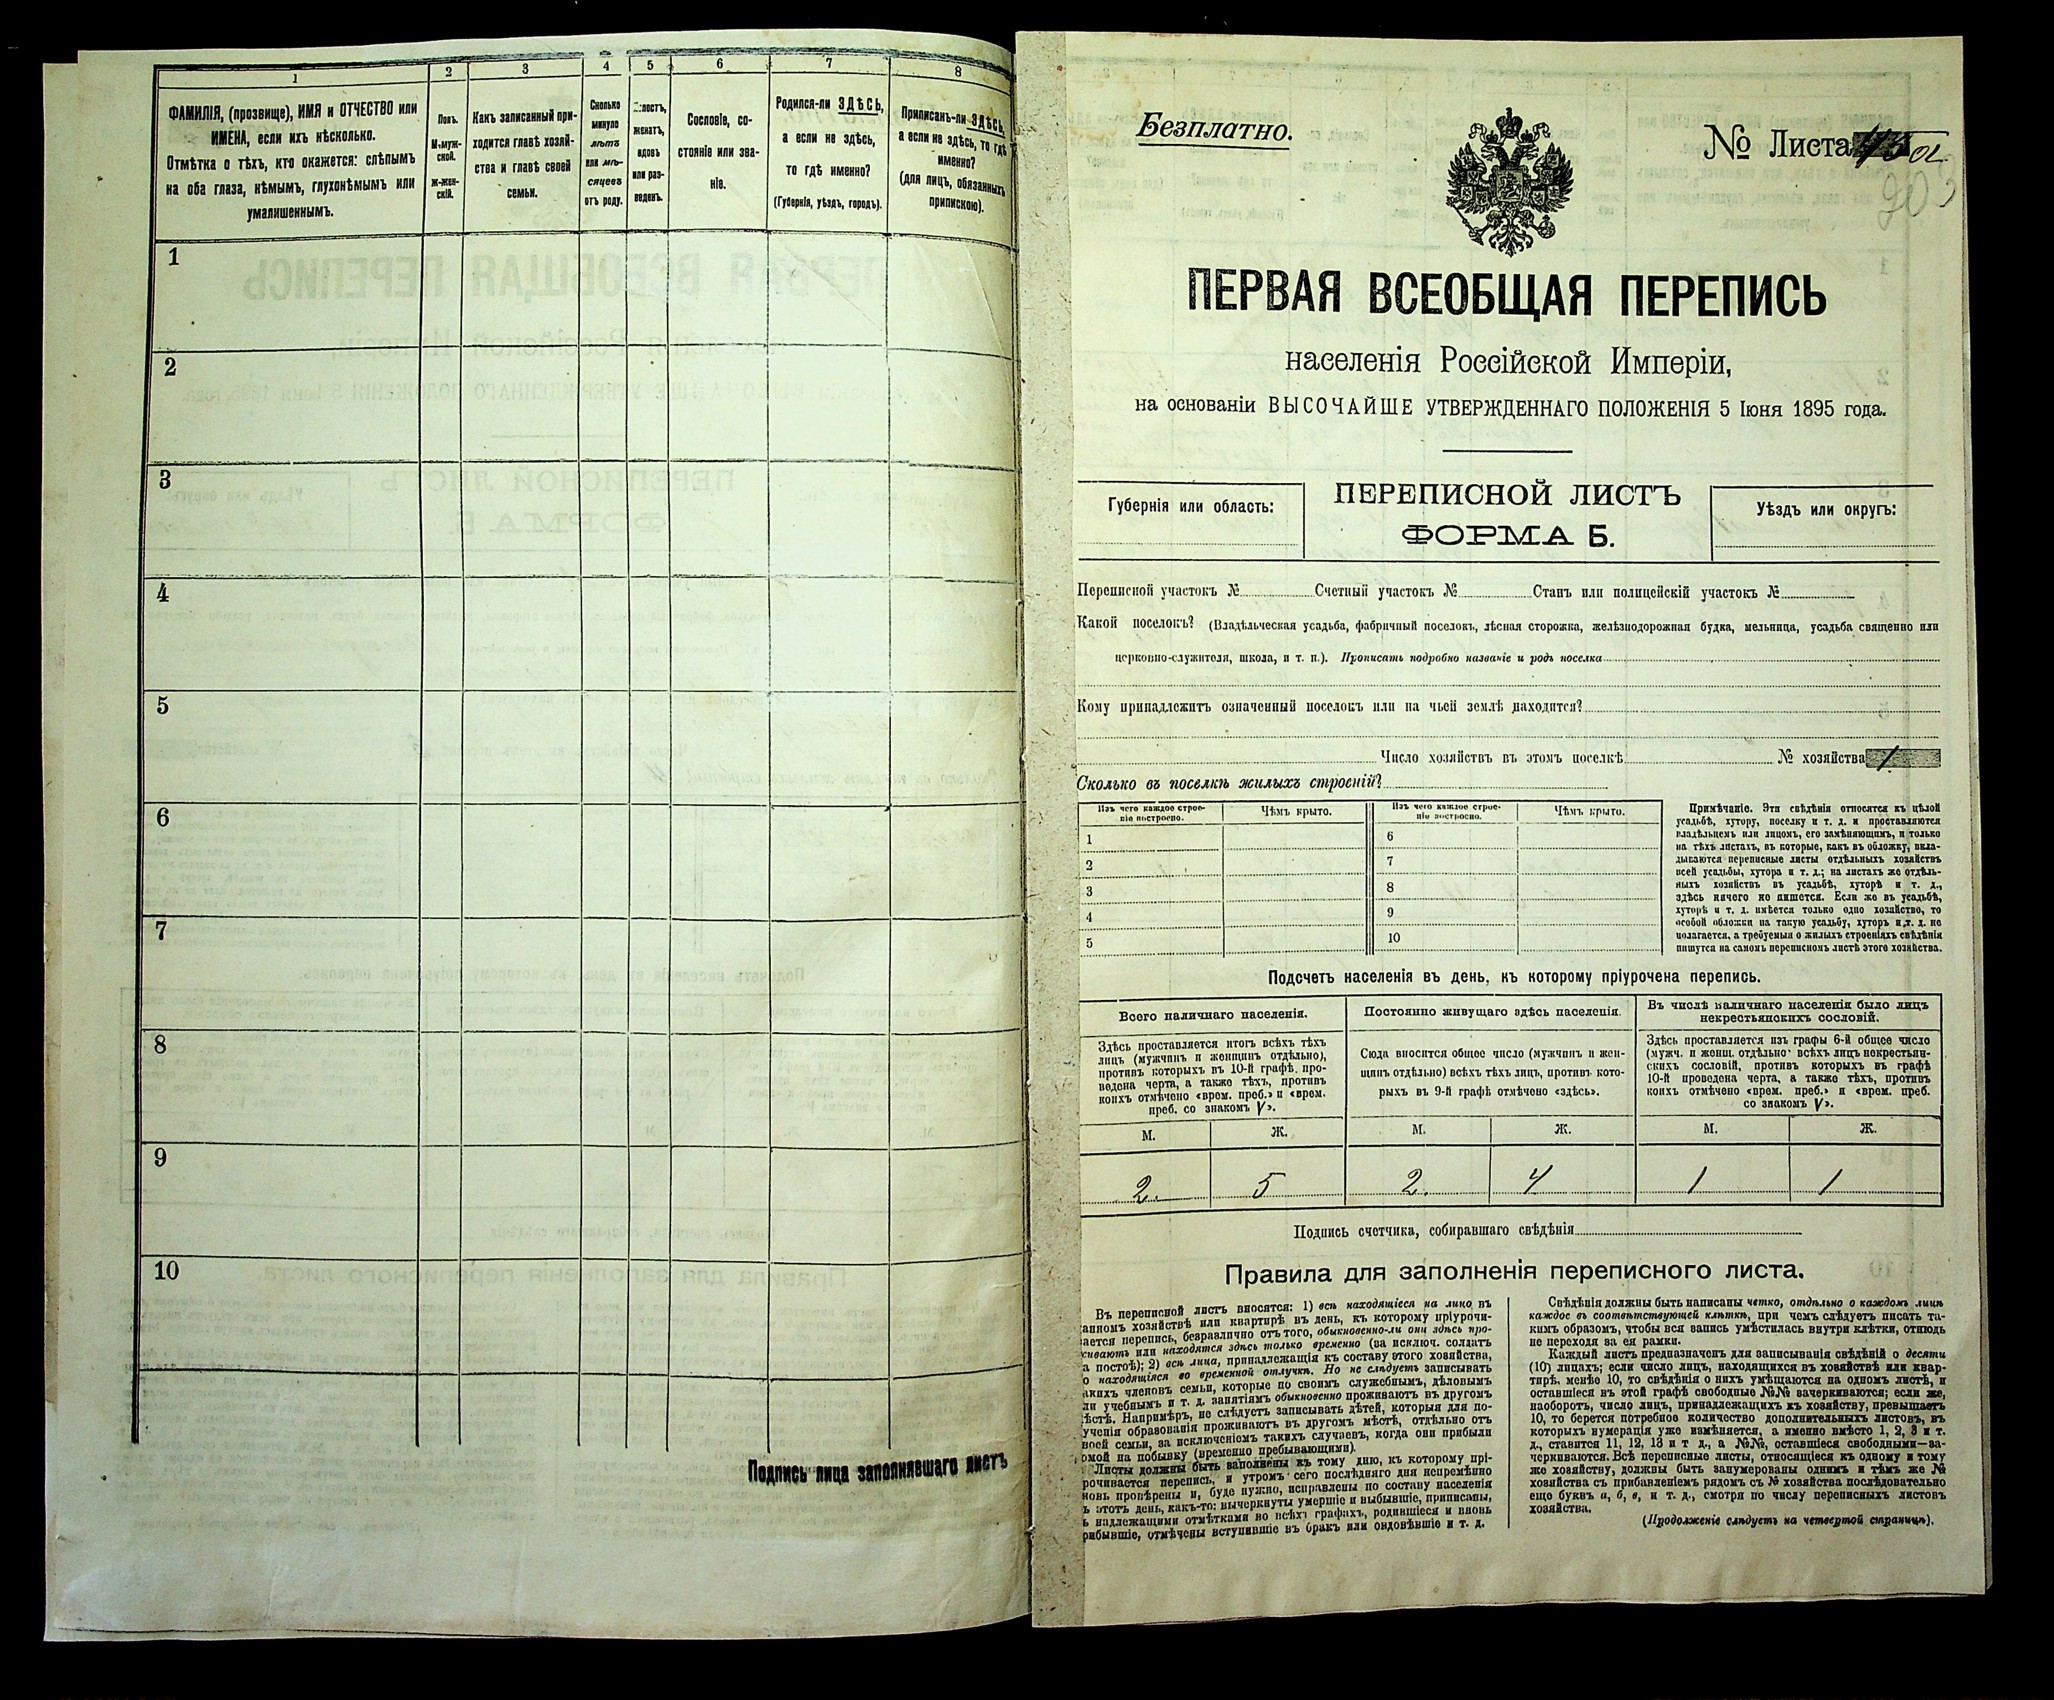 1 2 3 4 5 6 7 8
ФАМИЛІЯ, (прозвище), ИМЯ и ОТЧЕСТВО или
ИМЕНА, если ихъ нѣсколько.
Отмѣтка о тѣхъ, кто окажется: слѣпымъ
на оба глаза, нѣмымъ, глухонѣмымъ или
умалишеннымъ.
Полъ.
М-муж-
ской.
Ж-жен-
скій.
Какъ записанный при-
ходится главѣ хозяй-
ства и главѣ своей
семьи.
Сколько
минуло
лѣтъ
или мѣ-
сяцевъ
отъ роду.
женатъ,
вдовъ
или раз-
веденъ.
Сословіе, со-
стояніе или зва-
ніе.
Родился-ли ЗДѢСЬ,
а если не здѣсь,
то гдѣ именно?
(Губернія, уѣздъ, городъ).
Приписанъ-ли ЗДѢСЬ,
а если не здѣсь, то гдѣ
именно?
(для лицъ, обязанныхъ
припискою).
1
2
3
4
5
6
7
8
9
10
Подпись лица заполнявшаго листъ
Безплатно.
№ Листа 45а
903
ПЕРВАЯ ВСЕОБЩАЯ ПЕРЕПИСЬ
населенія Россійской Имперіи,
на основаніи ВЫСОЧАЙШЕ УТВЕРЖДЕННАГО ПОЛОЖЕНІЯ 5 Іюня 1895 года.
Губернія или область:
ПЕРЕПИСНОЙ ЛИСТЪ
ФОРМА Б.
Уѣздъ или округъ:
Переписной участокъ № Счетный участокъ № Станъ или полицейскій участокъ №
Какой поселокъ? (Владѣльческая усадьба, фабричный поселокъ, лѣсная сторожка, желѣзнодорожная будка, мельница, усадьба священно или
церковно-служителя, школа, и т. п.). Прописать подробно названіе и родъ поселка
Кому принадлежитъ означенный поселокъ или на чьей землѣ находится?
Число хозяйствъ въ этомъ поселкѣ № хозяйства 1
Сколько въ поселкѣ жилыхъ строеній?
Изъ чего каждое строе-
ніе построено.
Чѣмъ крыто.
Изъ чего каждое строе-
ніе построено.
Чѣмъ крыто.
1 6
2 7
3 8
4 9
5 10
Примѣчаніе. Эти свѣдѣнія относятся къ цѣлой
усадьбѣ, хутору, поселку и т. д. и проставляются
владѣльцемъ или лицомъ, его замѣняющимъ, и только
на тѣхъ листахъ, въ которые, какъ въ обложку, вкла-
дываются переписные листы отдѣльныхъ хозяйствъ
всей усадьбы, хутора и т. д.; на листахъ же отдѣль-
ныхъ хозяйствъ въ усадьбѣ, хуторѣ и т. д.,
здѣсь ничего не пишется. Если же въ усадьбѣ,
хуторѣ и т. д. имѣется только одно хозяйство, то
особой обложки на такую усадьбу, хуторъ и т. д. не
полагается, а требуемыя о жилыхъ строеніяхъ свѣдѣнія
пишутся на самомъ переписномъ листѣ этого хозяйства.
Подсчетъ населенія въ день, къ которому пріурочена перепись.
Всего наличнаго населенія.
Здѣсь проставляется итогъ всѣхъ тѣхъ
лицъ (мужчинъ и женщинъ отдѣльно),
противъ которыхъ въ 10-й графѣ про-
ведена черта, а также тѣхъ, противъ
коихъ отмѣчено «врем. преб.» и «врем.
преб. со знакомъ V».
Постоянно живущаго здѣсь населенія.
Сюда вносится общее число (мужчинъ и жен-
щинъ отдѣльно) всѣхъ тѣхъ лицъ, противъ кото-
рыхъ въ 9-й графѣ отмѣчено «здѣсь».
Въ числѣ наличнаго населенія было лицъ
некрестьянскихъ сословій.
Здѣсь проставляется изъ графы 6-й общее число
(мужч. и женщ. отдѣльно) всѣхъ лицъ некрестьян-
скихъ сословій, противъ которыхъ въ графѣ
10-й проведена черта, а также тѣхъ, противъ
коихъ отмѣчено «врем. преб.» и «врем. преб.
со знакомъ V».
М. Ж. М. Ж. М. Ж.
2. 5 2. 4 1 1
Подпись счетчика, собиравшаго свѣдѣнія
Правила для заполненія переписного листа.
Въ переписной листъ вносятся: 1) всѣ находящіеся на лицо въ
анномъ хозяйствѣ или квартирѣ въ день, къ которому пріурочи-
вается перепись, безразлично отъ того, обыкновенно-ли они здѣсь про-
живаютъ или находятся здѣсь только временно (за исключ. солдатъ
а постоѣ); 2) всѣ лица, принадлежащія къ составу этого хозяйства,
о находящіяся во временной отлучкѣ. Но не слѣдуетъ записывать
акихъ членовъ семьи, которые по своимъ служебнымъ, дѣловымъ
ли учебнымъ и т. д. занятіямъ обыкновенно проживаютъ въ другомъ
ѣстѣ. Напримѣръ, не слѣдуетъ записывать дѣтей, которыя для по-
ученія образованія проживаютъ въ другомъ мѣстѣ, отдѣльно отъ
воей семьи, за исключеніемъ такихъ случаевъ, когда они прибыли
омой на побывку (временно пребывающими).
Листы должны быть заполнены къ тому дню, къ которому прі-
рочивается перепись, и утромъ сего послѣдняго дня непремѣнно
новь провѣрены и, буде нужно, исправлены по составу населенія
ъ этотъ день, какъ-то: вычеркнуты умершіе и выбывшіе, приписаны,
ъ надлежащими отмѣтками во всѣхъ графахъ, родившіеся и вновь
рибывшіе, отмѣчены вступившіе въ бракъ или овдовѣвшіе и т. д.
Свѣдѣнія должны быть написаны четко, отдѣльно о каждомъ лицѣ
каждое въ соотвѣтствующей клѣткѣ, при чемъ слѣдуетъ писать та-
кимъ образомъ, чтобы вся запись умѣстилась внутри клѣтки, отнюдь
не переходя за ея рамки.
Каждый листъ предназначенъ для записыванія свѣдѣній о десяти
(10) лицахъ; если число лицъ, находящихся въ хозяйствѣ или квар-
тирѣ, менѣе 10, то свѣдѣнія о нихъ умѣщаются на одномъ листѣ, и
оставшіеся въ этой графѣ свободные №№ зачеркиваются; если же,
наоборотъ, число лицъ, принадлежащихъ къ хозяйству, превышаетъ
10, то берется потребное количество дополнительныхъ листовъ, въ
которыхъ нумерація уже измѣняется, а именно вмѣсто 1, 2, 3 и т.
д., ставится 11, 12, 13 и т д., а №№, оставшіеся свободными—за-
черкиваются. Всѣ переписные листы, относящіеся къ одному и тому
же хозяйству, должны быть занумерованы однимъ и тѣмъ же №
хозяйства съ прибавленіемъ рядомъ съ № хозяйства послѣдовательно
еще буквъ а, б, в, и т. д., смотря по числу переписныхъ листовъ
хозяйства.
(Продолженіе слѣдуетъ на четвертой страницѣ).